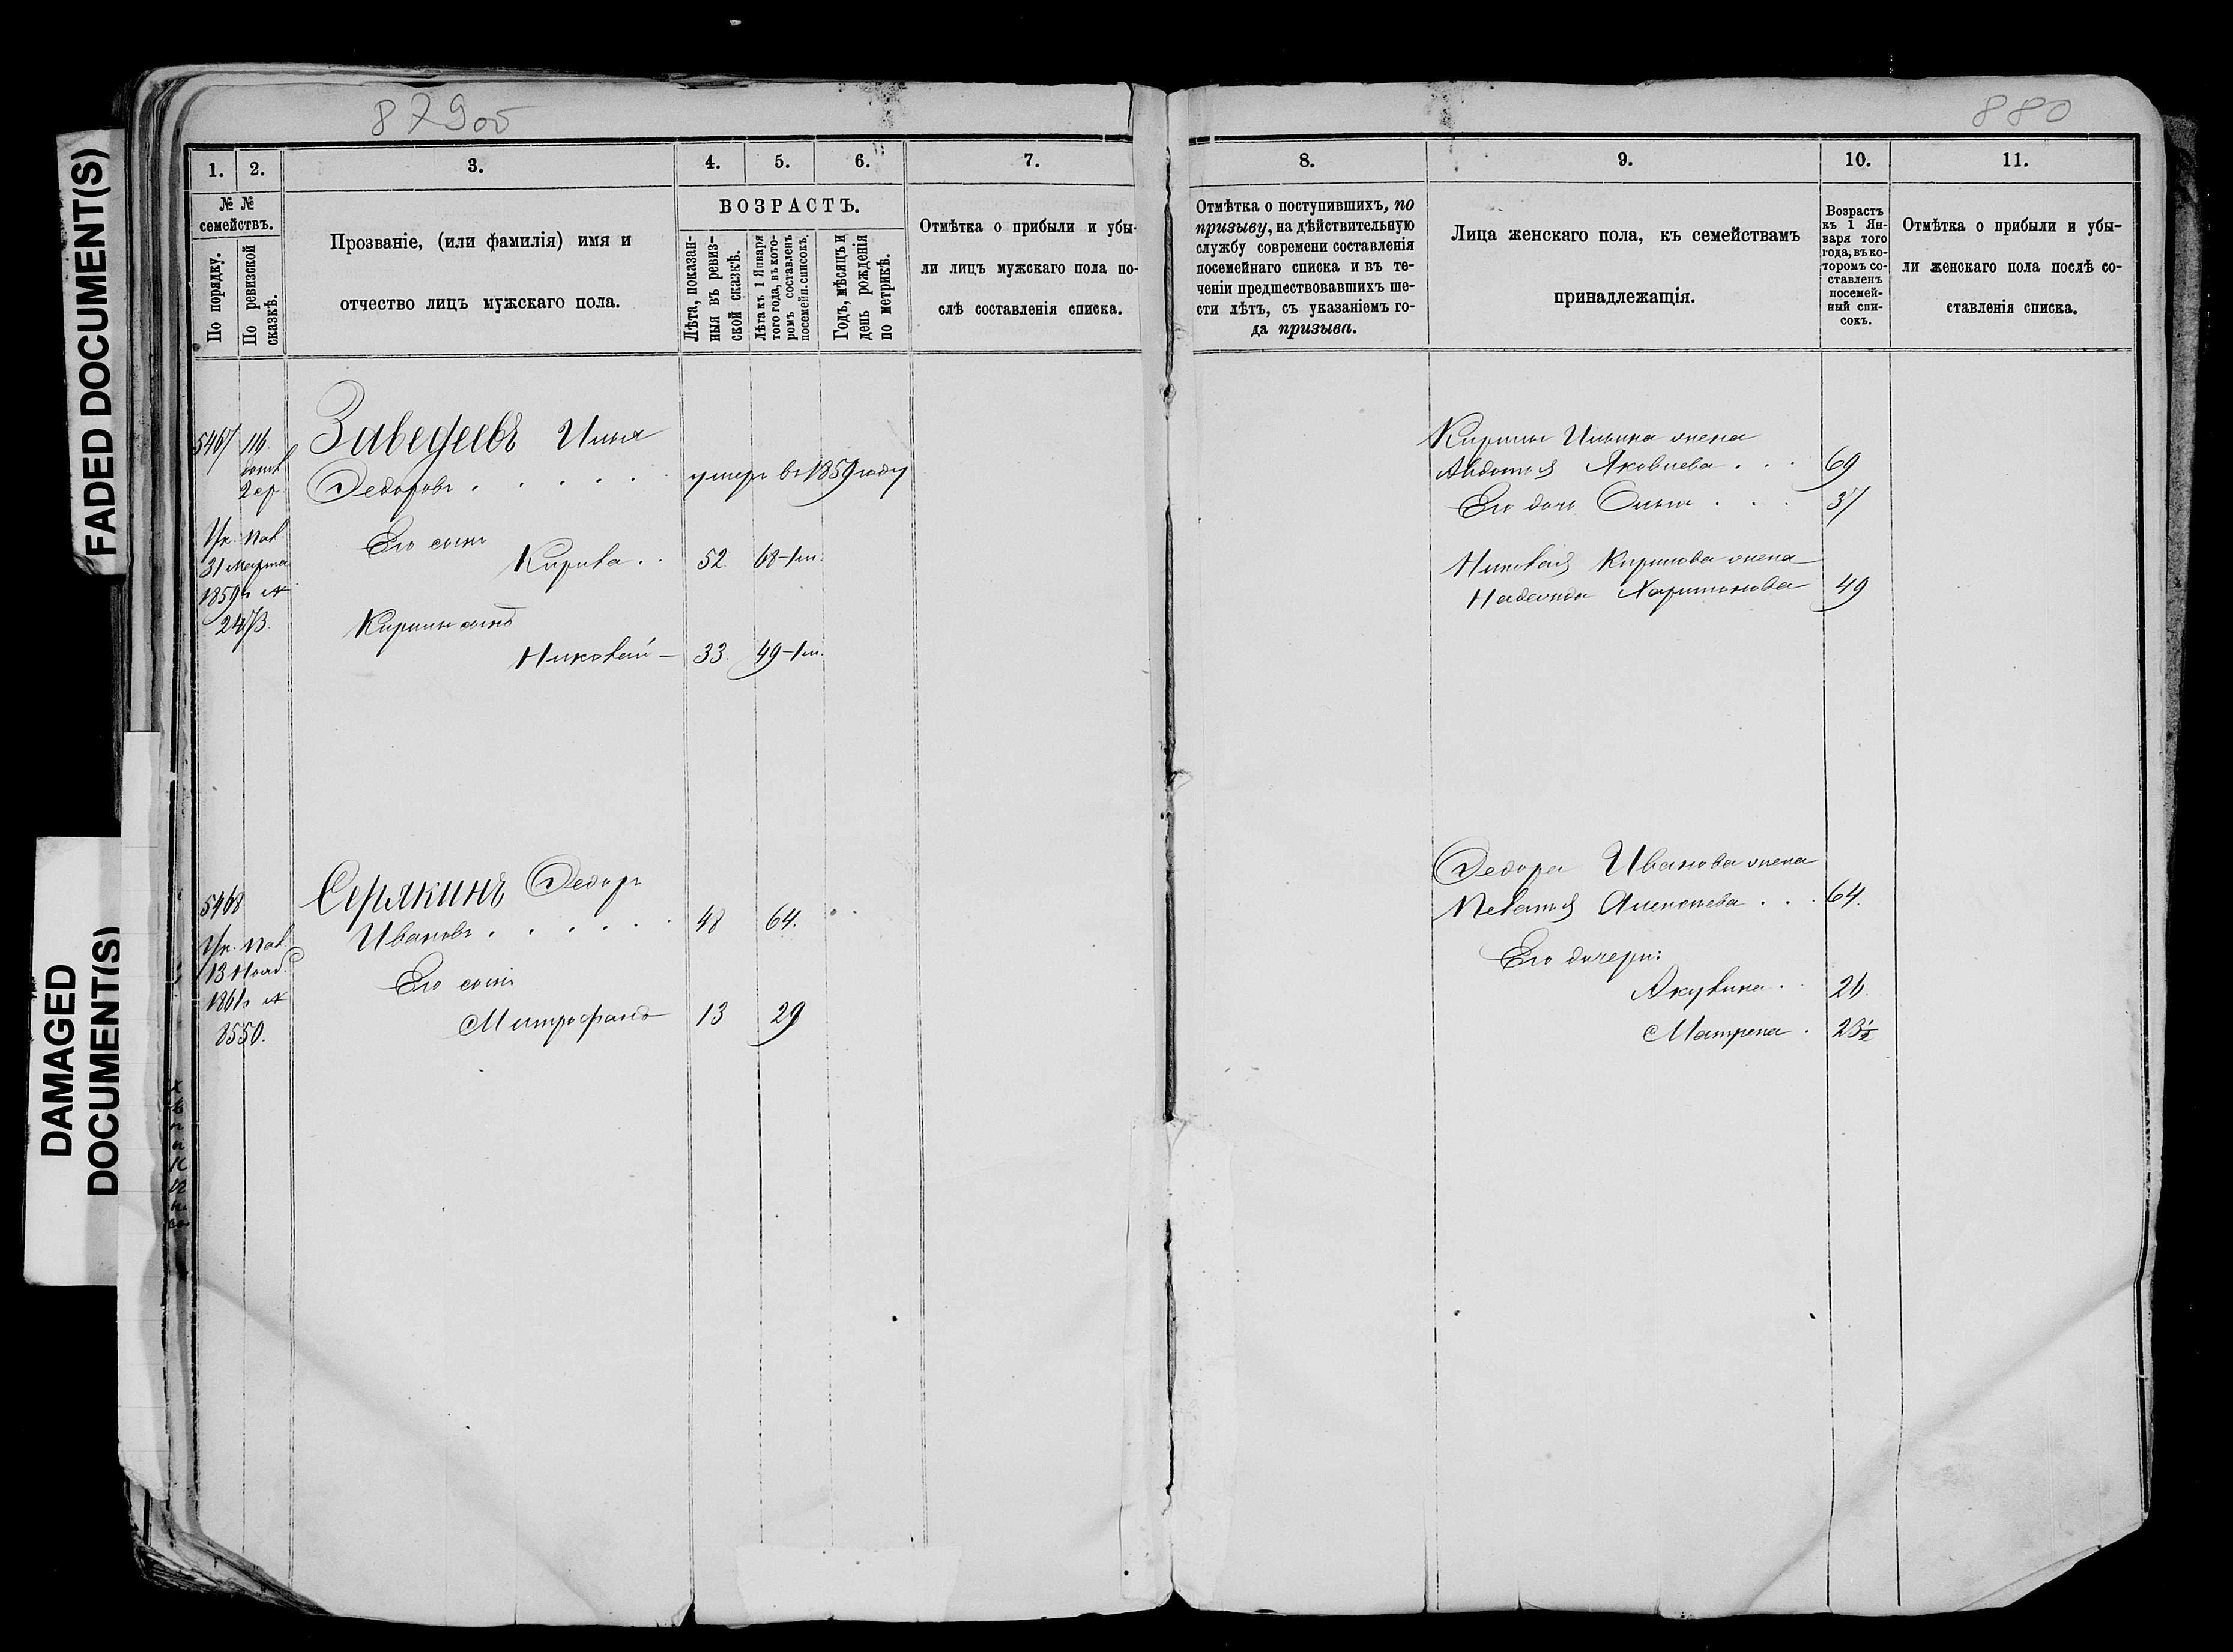 FADED DOCUMENT(S)
DAMAGED
DOCUMENT(S)
879об
880
1.
2.
3.
4.
5.
6.
7.
№ №
семействъ.
По порядку.
По ревизской
сказкѣ.
Прозваніе, (или фамилія) имя и
отчество лицъ мужскаго пола.
ВОЗРАСТЪ.
Лѣта, показан-
ныя въ ревиз-
ской сказкѣ.
Лѣта къ 1 Января
того года, въ кото-
ромъ составленъ
посемейн. списокъ.
Годъ, мѣсяцъ и
день рожденія
по метрикѣ.
Отмѣтка о прибыли и убы-
ли лицъ мужскаго пола по-
слѣ составленія списка.
8.
9.
10.
11.
Отмѣтка о поступившихъ, по
призыву, на дѣйствительную
службу современи составленія
посемейнаго списка и въ те-
ченіи предшествовавшихъ ше-
сти лѣтъ, съ указаніемъ го-
да призыва.
Лица женскаго пола, къ семействамъ
принадлежащія.
Возрастъ
къ 1 Ян-
варя того
года, въ ко-
торомъ со-
ставленъ
посемей-
ный спи-
сокъ.
Отмѣтка о прибыли и убы-
ли женскаго пола послѣ со-
ставленія списка.
5467
116
2 ср
Ук. Пал.
31 Марта
1859 г. №
2473.
Заведеевъ Илья
Ѳедоровъ . . . . . умеръ въ 1859 году
Его сынъ
Кирила . . 52. 68-1 м.
Кирилы сынъ
Николай – 33. 49-1 м.
Кирилы Ильина жена
Авдотья Яковлева . . . 69
Его дочь Ольга . . . 37
Николая Кирилова жена
Надежда Харитонова 49
5468
Ук. Пал.
13 Нояб.
1861 г. №
8550.
Серякинъ Ѳедоръ
Ивановъ . . . . . 48 64.
Его сынъ
Митрофанъ 13 29
Ѳедора Иванова жена
Пелагея Алексеева . . . 64.
Его дочери:
Акулина . . 26
Матрена . 23½